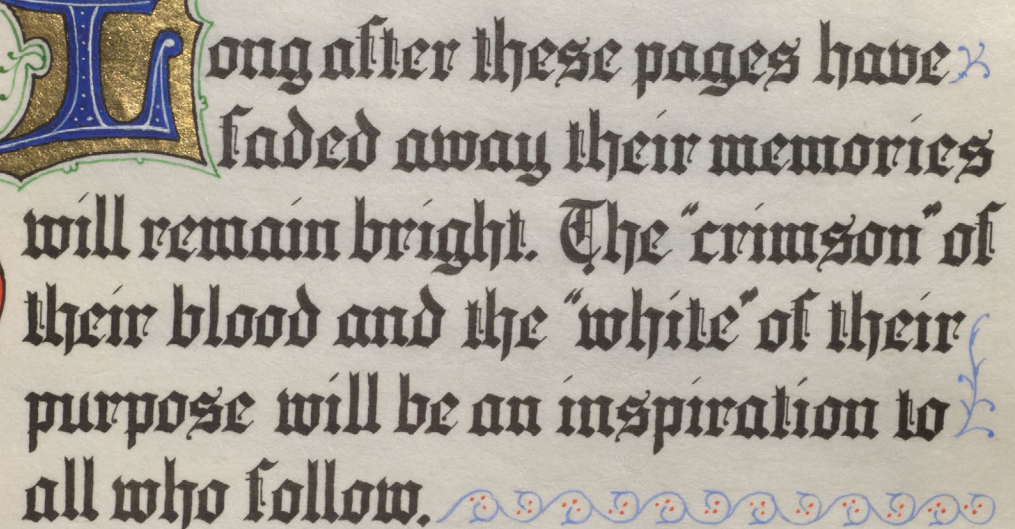 Long after these pages have
faded away their memories
will remain bright. The "crimson" of
their blood and the "white" of their
purpose will be an inspiration to
all who follow.